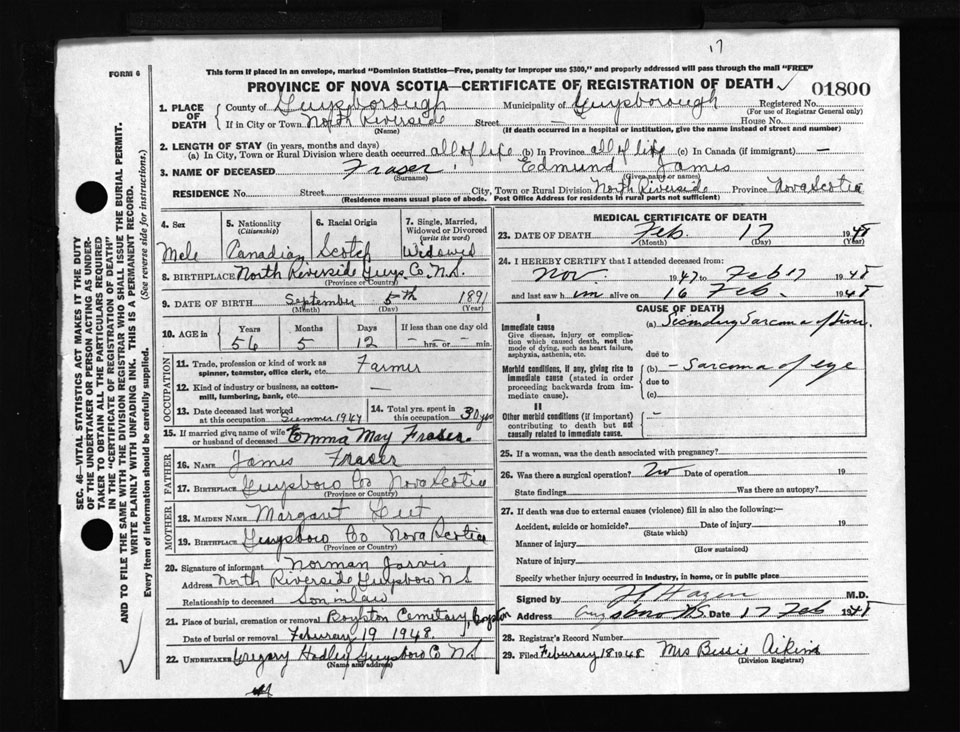 17
FORM 6
This form if placed in an envelope, marked "Dominion Statistics—Free, penalty for improper use $300," and properly addressed will pass through the mail "FREE"
PROVINCE OF NOVA SCOTIA—CERTIFICATE OF REGISTRATION OF DEATH ✓ 01800
1. PLACE OF DEATH { County of Guysborough Municipality of Guysborough Registered No.
(For use of Registrar General only)
If in City or Town North Riverside Street — House No.
(Name) (If death occurred in a hospital or institution, give the name instead of street and number)
2. LENGTH OF STAY (in years, months and days)
(a) In City, Town or Rural Division where death occurred all of life (b) In Province all of life (c) In Canada (if immigrant) —
3. NAME OF DECEASED Fraser Edmund James
(Surname) (Given name or names)
RESIDENCE No. Street City, Town or Rural Division North Riverside Province Nova Scotia
(Residence means usual place of abode. Post Office Address for residents in rural parts not sufficient)
4. Sex 5. Nationality (Citizenship) 6. Racial Origin 7. Single, Married, Widowed or Divorced (write the word)
Male Canadian Scotch Widowed
8. BIRTHPLACE North Riverside Guys. Co. N.S.
(Province or Country)
9. DATE OF BIRTH September 5th 1891
(Month) (Day) (Year)
10. AGE in { Years Months Days If less than one day old
56 5 12 — hrs. or — min.
OCCUPATION
11. Trade, profession or kind of work as spinner, teamster, office clerk, etc. Farmer
12. Kind of industry or business, as cotton-mill, lumbering, bank, etc. —
13. Date deceased last worked at this occupation Summer 1947 14. Total yrs. spent in this occupation 30 yrs
15. If married give name of wife or husband of deceased Emma May Fraser.
FATHER
16. NAME James Fraser
17. BIRTHPLACE Guysboro Co Nova Scotia
(Province or Country)
MOTHER
18. MAIDEN NAME Margaret
19. BIRTHPLACE Guysboro Co Nova Scotia
(Province or Country)
20. Signature of informant Norman Jarvis
Address North Riverside Guysboro N S
Relationship to deceased Son in law
21. Place of burial, cremation or removal Boylston Cemetary, Boylston
Date of burial or removal Feburary 19 1948.
22. UNDERTAKER Gregory Hadley Guysboro Co N.S.
(Name and address)
MEDICAL CERTIFICATE OF DEATH
23. DATE OF DEATH Feb. 17 1948
(Month) (Day) (Year)
24. I HEREBY CERTIFY that I attended deceased from:
Nov. 1947 to Feb 17 1948
and last saw him alive on 16 Feb 1948
CAUSE OF DEATH
I
Immediate cause (a) Secondary Sarcoma of liver.
Give disease, injury or complication which caused death, not the mode of dying, such as heart failure, asphyxia, asthenia, etc.
due to
Morbid conditions, if any, giving rise to immediate cause (stated in order proceeding backwards from immediate cause). (b) — Sarcoma of eye
due to
(c)
II
Other morbid conditions (if important) contributing to death but not causally related to immediate cause. —
25. If a woman, was the death associated with pregnancy?
26. Was there a surgical operation? No Date of operation 19
State findings Was there an autopsy?
27. If death was due to external causes (violence) fill in also the following:—
Accident, suicide or homicide? Date of injury 19
(State which)
Manner of injury
(How sustained)
Nature of injury
Specify whether injury occurred in industry, in home, or in public place
Signed by Hazen M.D.
Address Guysboro N.S. Date 17 Feb 1948
28. Registrar's Record Number
29. Filed Feburary 18 1948 Mrs Bessie Aikins
(Division Registrar)
SEC. 46—VITAL STATISTICS ACT MAKES IT THE DUTY
OF THE UNDERTAKER OR PERSON ACTING AS UNDER-
TAKER TO OBTAIN ALL THE PARTICULARS REQUIRED
IN THE "CERTIFICATE OF REGISTRATION OF DEATH"
AND TO FILE THE SAME WITH THE DIVISION REGISTRAR WHO SHALL ISSUE THE BURIAL PERMIT.
WRITE PLAINLY WITH UNFADING INK. THIS IS A PERMANENT RECORD.
Every item of information should be carefully supplied. (See reverse side for instructions.)